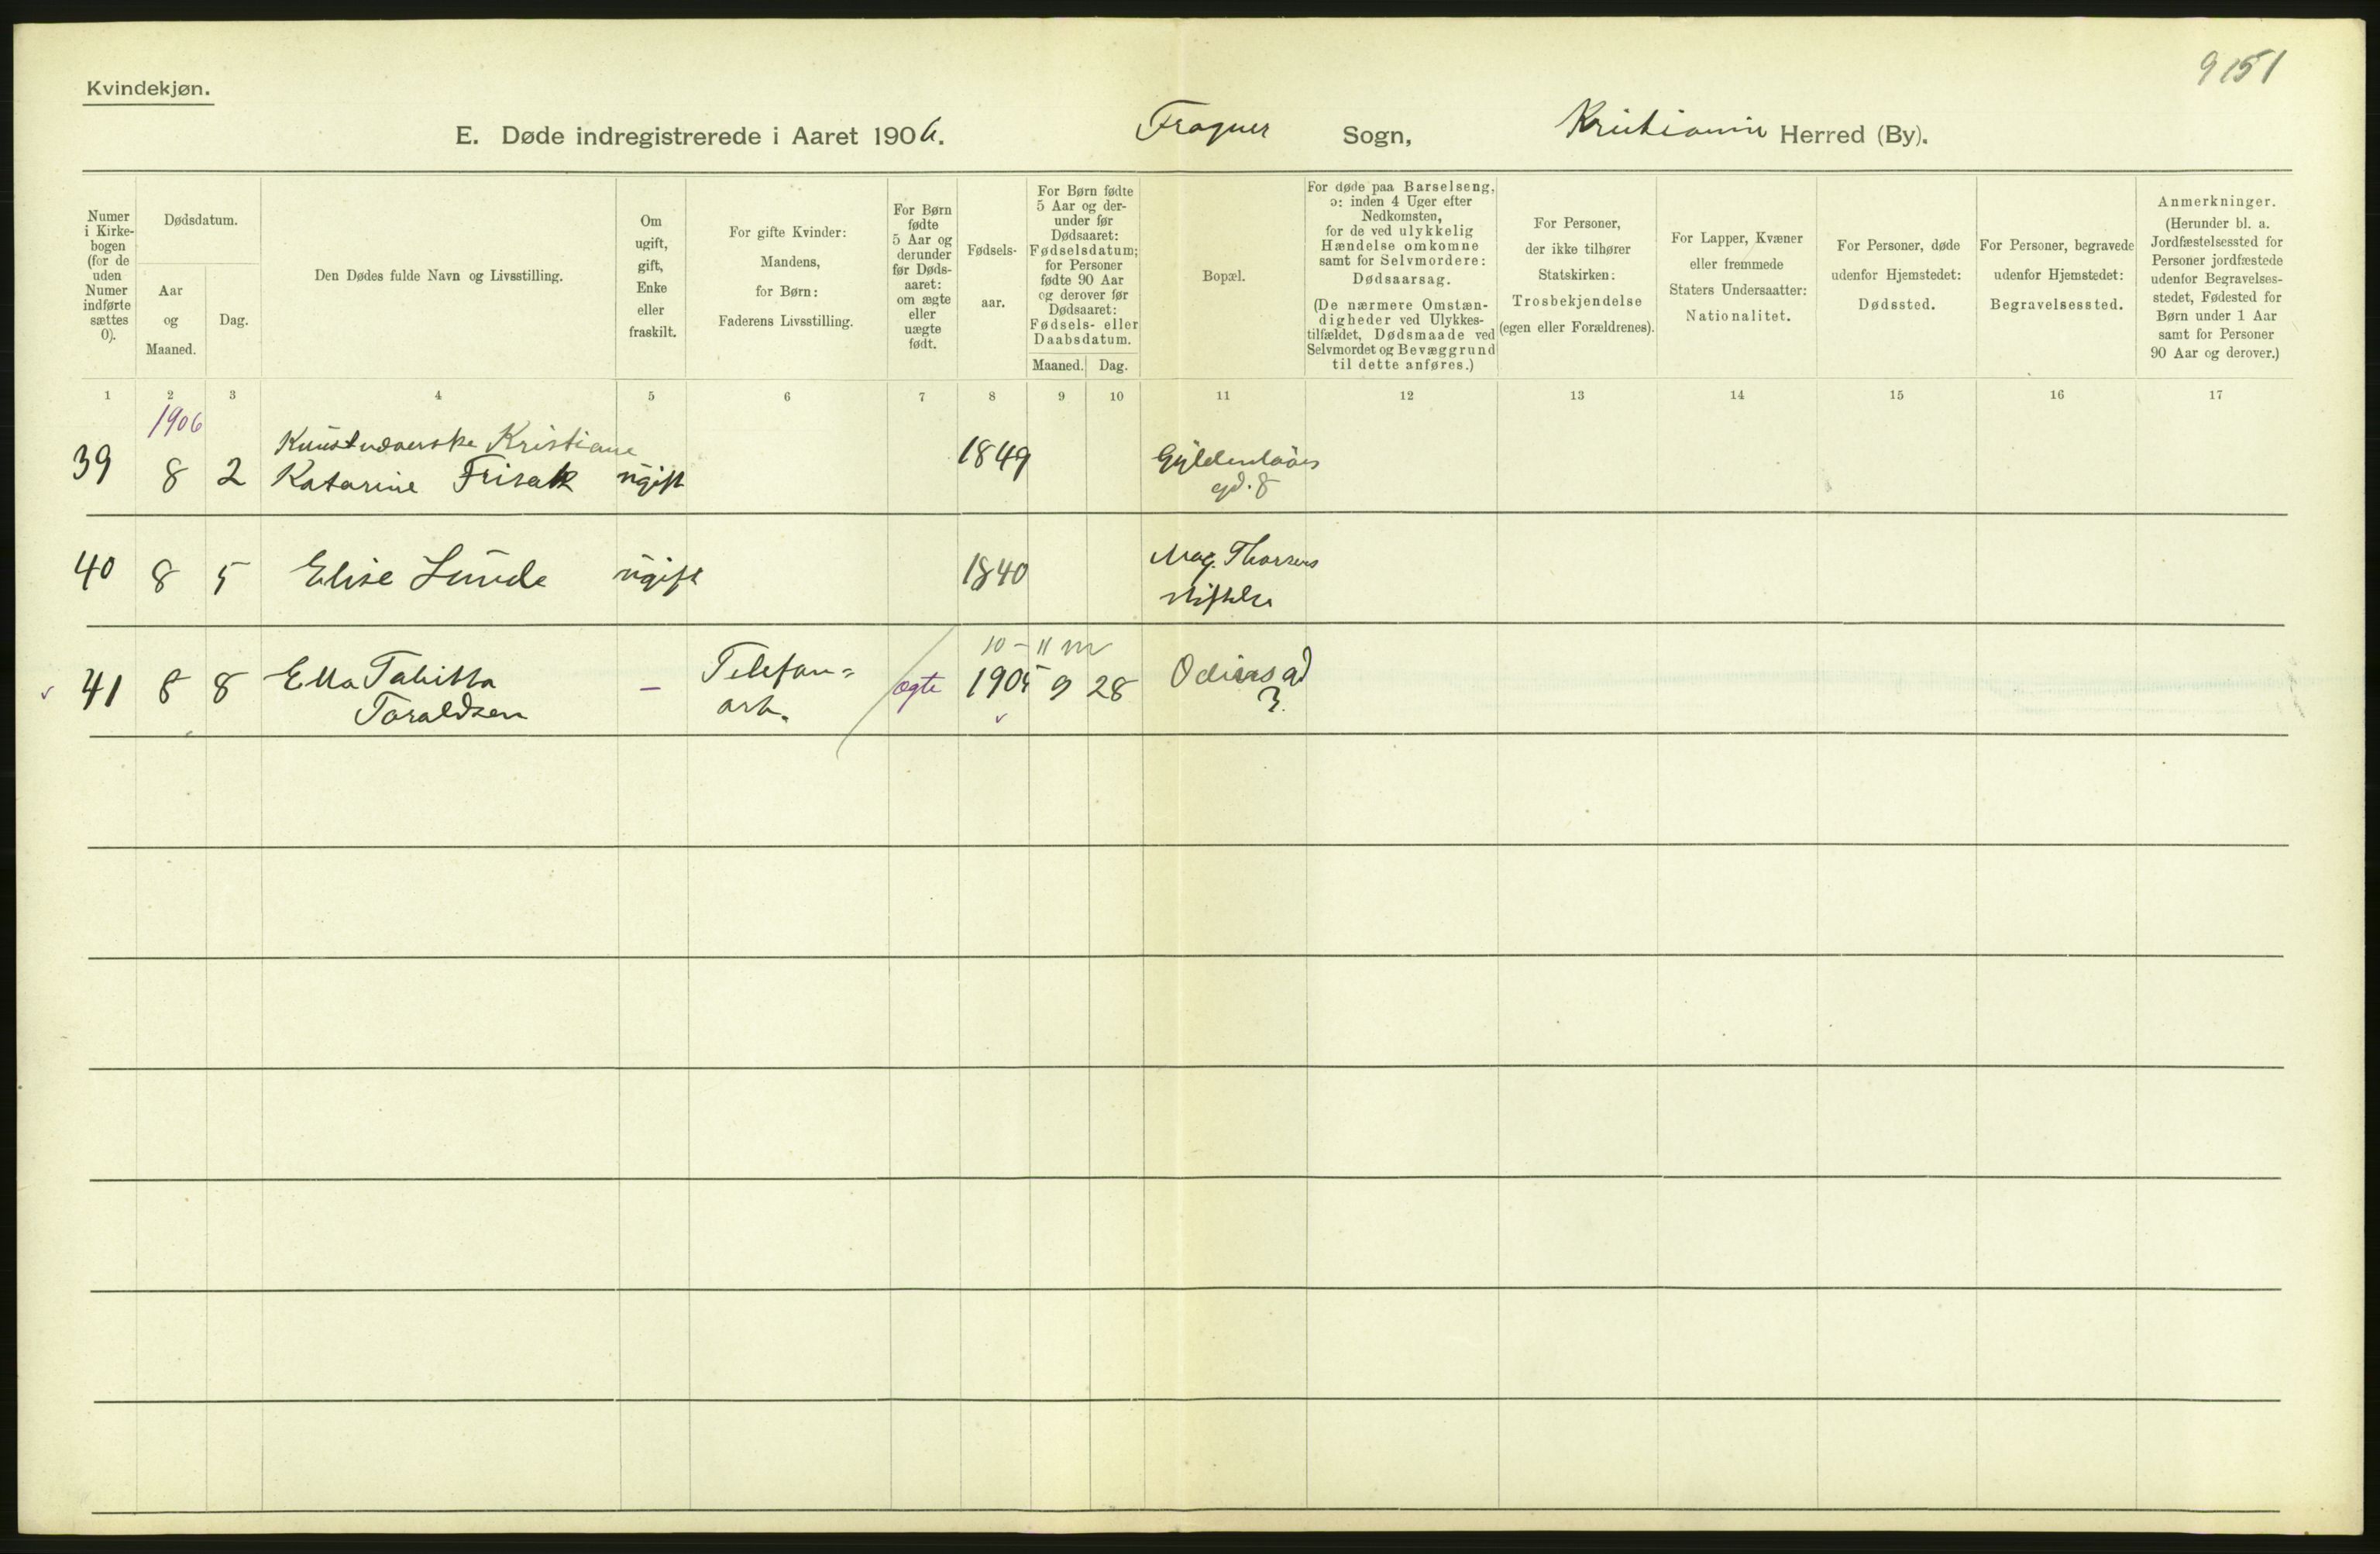 9151
Kvindekjøn.
E. Døde indregistrerede i Aaret 1906. Frogner Sogn, Kristiania Herred (By).
Numer i Kirke-bogen (for de uden Numer indførte sættes 0).
Dødsdatum.
Aar og Maaned.
Dag.
Den Dødes fulde Navn og Livsstilling.
Om ugift, gift, Enke eller fraskilt.
For gifte Kvinder: Mandens, for Børn: Faderens Livsstilling.
For Børn fødte 5 Aar og derunder før Døds-aaret: om ægte eller uægte født.
Fødsels-aar.
For Børn fødte 5 Aar og der-under før Dødsaaret: Fødselsdatum; for Personer fødte 90 Aar og derover før Dødsaaret: Fødsels- eller Daabsdatum.
Maaned. Dag.
Bopæl.
For døde paa Barselseng, ɔ: inden 4 Uger efter Nedkomsten, for de ved ulykkelig Hændelse omkomne samt for Selvmordere: Dødsaarsag.
(De nærmere Omstæn-digheder ved Ulykkes-tilfældet, Dødsmaade ved Selvmordet og Bevæggrund til dette anføres.)
For Personer, der ikke tilhører Statskirken: Trosbekjendelse (egen eller Forældrenes).
For Lapper, Kvæner eller fremmede Staters Undersaatter: Nationalitet.
For Personer, døde udenfor Hjemstedet: Dødssted.
For Personer, begravede udenfor Hjemstedet: Begravelsessted.
Anmerkninger.
(Herunder bl. a. Jordfæstelsessted for Personer jordfæstede udenfor Begravelses-stedet, Fødested for Børn under 1 Aar samt for Personer 90 Aar og derover.)
1 2 3 4 5 6 7 8 9 10 11 12 13 14 15 16 17
1906
Kunstvæverske Kristiane
39 8 2 Katarine Frisak ugift 1849 Gyldenløves
gd. 8
40 8 5 Elise Lunde ugift 1840 Mag. Thorsens
stiftelse
10 - 11 m
41 8 8 Ella Tabitha Telefon= ægte 1905 9 28 Odinsgd
Toraldsen - arb. 3.